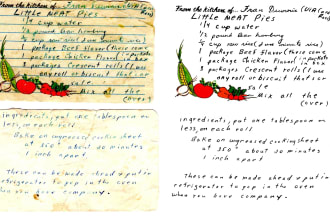 From the kitchen of... Fran
Little MEAT Pies
1/4 cup water
1/2 pound hamburg
1 package Beef flavor (these come
1 package Chicken Flavor in packets
3 packages Crescent rolls (I use
any roll or biscuit that is on
sale
Mix all the
(over)
ingredients, put one tablespoon or
less, on each roll.
Bake on ungreased cooking sheet
at 350° about 20 minutes
1 inch apart.
These can be made ahead & put in
refrigerator to pop in the oven
when you have company.
From the kitchen of... Fran
Little MEAT Pies
1/4 cup water
1/2 pound hamburg
1 package Beef flavor (these come
1 package Chicken Flavor in packets
3 packages Crescent rolls (I use
any roll or biscuit that is on
sale
Mix all the
(over)
ingredients, put one tablespoon or
less, on each roll.
Bake on ungreased cooking sheet
at 350° about 20 minutes
1 inch apart.
These can be made ahead & put in
refrigerator to pop in the oven
when you have company.